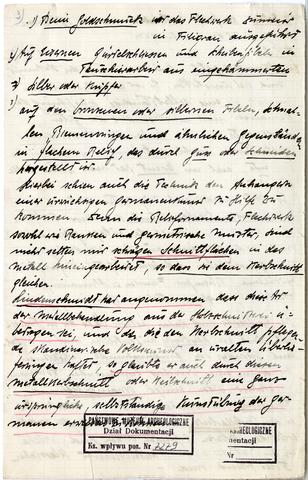 3)
1) Beim Goldschmuck ist das Flechtwerk zumeist
in Filigran ausgeführt
2) Auf eisernen Gürtelschliessen und
Tauschierarbeit aus eingehämmerten
3) Silber oder Kupfer
auf den bronzenen oder silbernen Fibeln, schma-
len Riemenzungen und ähnlichen Gegenständen
in flachem Relief, das durch Guss oder schneiden
hergestellt ist.
Hierbei schien auch die Technik den Anhängern
einer germanischen zu Hilfe zu
kommen. Denn die Reliefornamente, Flechtwerk
sowohl wie Ranken und geometrische Muster, sind
nicht selten mit schrägen Schnittflächen in das
Metall hineingearbeitet, so dass sie dem Kerbschnitt
gleichen.
Lindenschmidt hat angenommen dass diese Art
der Metallbehandlung aus der Holzschnitzerei ü-
bertragen sei, und der die den Kerbschnitt pflegen-
de skandinavische Volkskunst an uralten Überlie-
ferungen haftet, so glaubte er auch durch diesen
Metallkerbschnitt oder Keilschnitt eine ganz
ursprüngliche, selbstständige Kunstübung der Ger-
manen
PAŃSTWOWE MUZEUM ARCHEOLOGICZNE
Dział Dokumentacji
Ks. wpływu poz. Nr 2279
ARCHEOLOGICZNE
mentacji
Nr